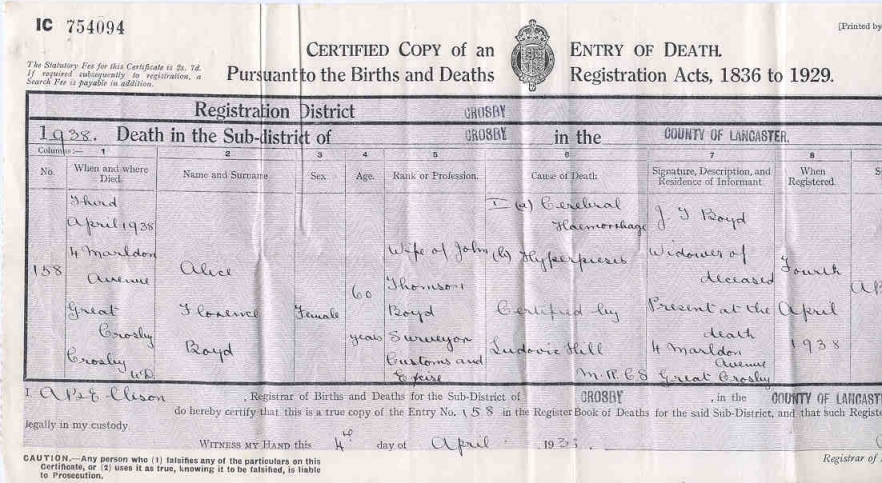 IC 754094
[Printed by
CERTIFIED COPY of an ENTRY OF DEATH.
The Statutory Fee for this Certificate is 2s. 7d.
If required subsequently to registration, a
Search Fee is payable in addition.
Pursuant to the Births and Deaths Registration Acts, 1836 to 1929.
Registration District CROSBY
1938. Death in the Sub-district of CROSBY in the COUNTY OF LANCASTER.
Columns:— 1 2 3 4 5 6 7 8
No. When and where Died. Name and Surname Sex Age. Rank or Profession. Cause of Death Signature, Description, and Residence of Informant. When Registered.
158
Third
April 1938
4 Marldon
Avenue
Great
Crosby
Crosby U.D.
Alice
Florence
Boyd
Female
60
years
Wife of John
Thomson
Boyd
Surveyor
Customs and
Excise
I (a) Cerebral
Haemorrhage
(b) Hyperpiesis
Certified by
Ludovic Hill
M.R.C.S
J. T Boyd
Widower of
deceased
Present at the
death
4 Marldon
Avenue
Great Crosby
Fourth
April
1938
I , Registrar of Births and Deaths for the Sub-District of CROSBY , in the COUNTY OF LANCAST
do hereby certify that this is a true copy of the Entry No. 158 in the Register Book of Deaths for the said Sub-District, and that such Registe
legally in my custody.
WITNESS MY HAND this 4th day of April 1938.
CAUTION.—Any person who (1) falsifies any of the particulars on this
Certificate, or (2) uses it as true, knowing it to be falsified, is liable
to Prosecution.
Registrar of